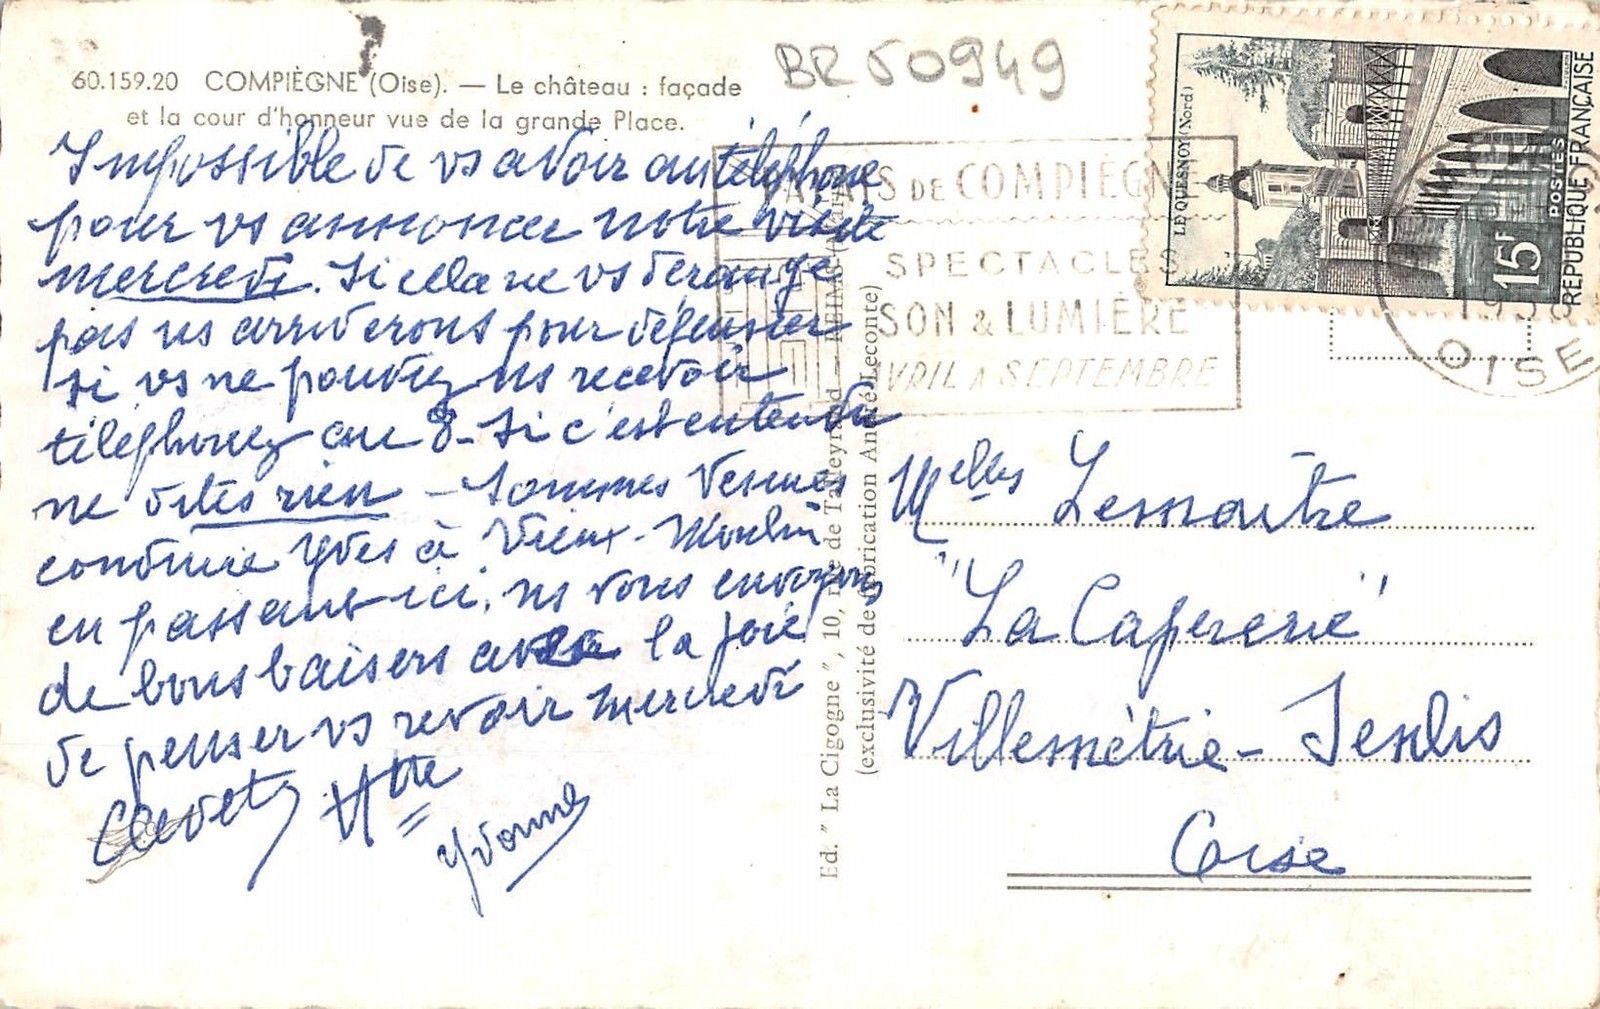 60.159.20 COMPIÈGNE (Oise). — Le château : façade
et la cour d'honneur vue de la grande Place.
BR 50949
Impossible de vs avoir au téléphone
pour vs annoncer notre visite
mercredi. Si cela ne vs dérange
pas ns arriverons pour déjeuner
si vs ne pouvez ns recevoir
téléphonez au 8 - Si c'est entendu
ne dites rien - Sommes venues
conduire Yves à Vieux-Moulin
en passant ici, ns vous envoyons
de bons baisers avec la joie
de penser vs revoir mercredi
Yvonne
Ed. "La Cigogne", 10, rue de Talleyrand - REIMS
(exclusivité de fabrication André Leconte)
PALAIS DE COMPIÈGNE
SPECTACLES
SON & LUMIÈRE
AVRIL A SEPTEMBRE
OISE
LE QUESNOY (Nord)
15F
POSTES
REPUBLIQUE FRANÇAISE
Melles Lemaitre
"La Capererie"
Villemétrie - Senlis
Oise